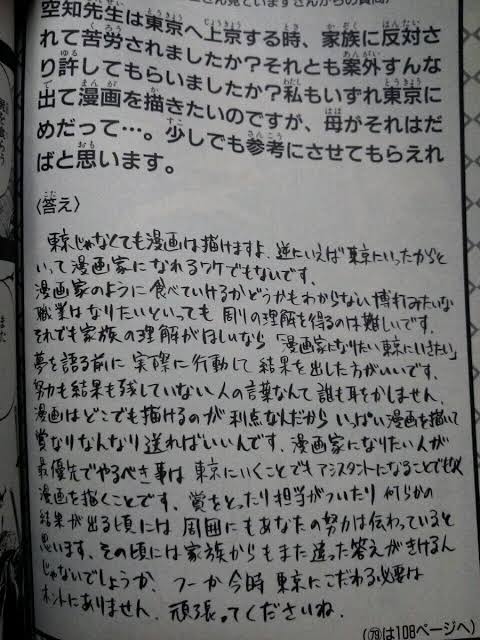 見ていますさんからの質問
空知先生は東京へ上京する時、家族に反対さ
れて苦労されましたか？それとも案外すんな
り許してもらいましたか？私もいずれ東京に
出て漫画を描きたいのですが、母がそれはだ
めだって…。少しでも参考にさせてもらえれ
ばと思います。
〈答え〉
東京じゃなくても漫画は描けますよ。逆にいえば東京にいったからと
いって漫画家になれるワケでもないです。
漫画家のように食べていけるかどうかもわからない博打みたいな
職業はなりたいといっても周りの理解を得るのは難しいです。
それでも家族の理解がほしいなら「漫画家になりたい東京にいきたい」
夢を語る前に実際に行動して結果を出した方がいいです。
努力も結果も残していない人の言葉なんて誰も耳をかしません。
漫画はどこでも描けるのが利点なんだからいっぱい漫画を描いて
賞なりなんなり送ればいいんです。漫画家になりたい人が
最優先でやるべき事は東京にいくことでもアシスタントになることでもなく
漫画を描くことです。賞をとったり担当がついたり何らかの
結果が出る頃には周囲にもあなたの努力は伝わっていると
思います。その頃には家族からもまた違った答えがきけるん
じゃないでしょうか。フーか今時東京にこだわる必要は
ホントにありません。頑張ってくださいね。
(79は108ページへ)